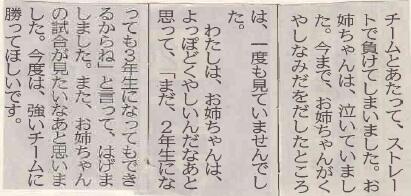 チームとあたって、ストレー
トで負けてしまいました。お
姉ちゃんは、泣いていまし
た。今まで、お姉ちゃんがく
やしなみだをだしたところ
は、一度も見ていませんでし
た。
わたしは、お姉ちゃんは、
よっぽどくやしいんだなあと
思って、「まだ、２年生にな
っても３年生になってもでき
るからね」と言って、はげま
しました。また、お姉ちゃん
の試合が見たいなあと思いま
した。今度は、強いチームに
勝ってほしいです。